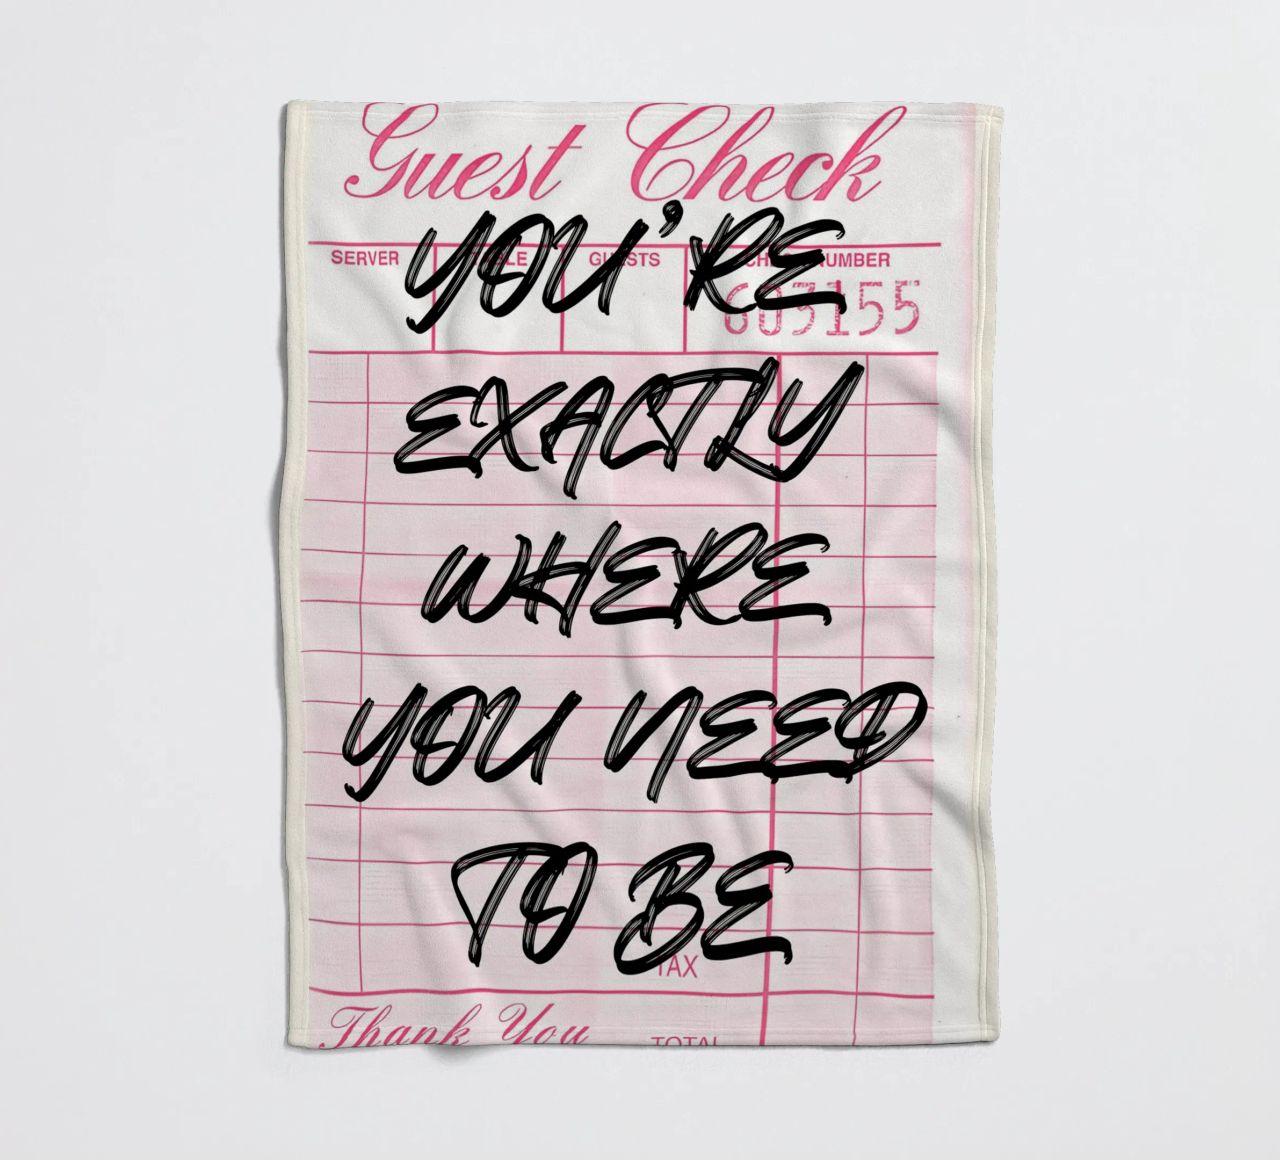 Guest Check
YOU'RE
SERVER TABLE GUESTS CHECK NUMBER
603155
EXACTLY
WHERE
YOU NEED
TO BE
TAX
Thank You TOTAL